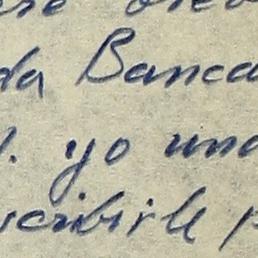 da Banca
. yo una
scribirle p